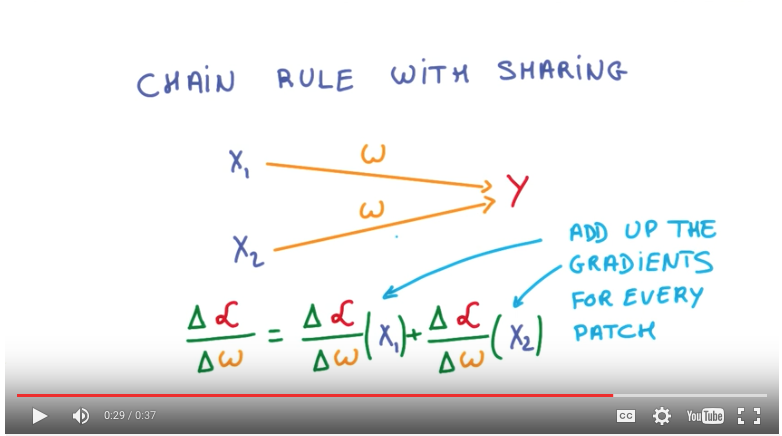 CHAIN RULE WITH SHARING
X₁ ω Y
X₂ ω
ADD UP THE
GRADIENTS
FOR EVERY
PATCH
Δℒ/Δω = Δℒ/Δω (X₁) + Δℒ/Δω (X₂)
0:29 / 0:37
CC
YouTube